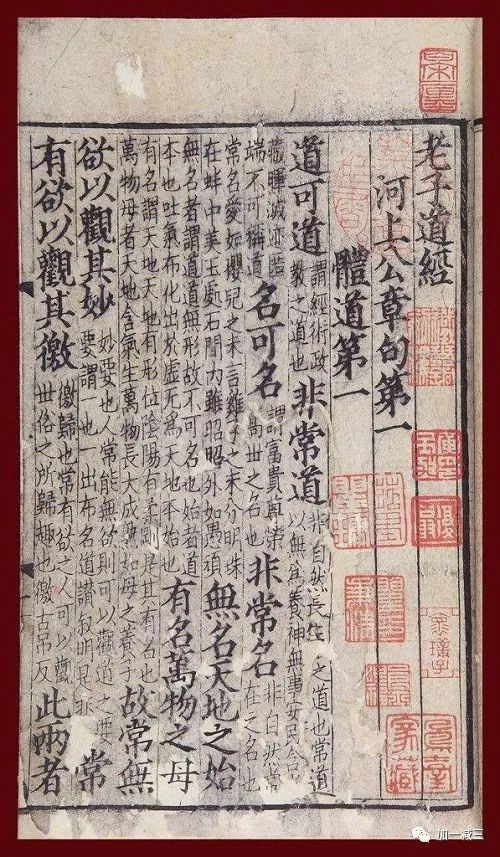 老子道經
河上公章句第一
體道第一
道可道謂經術政教之道也非常道非自然長生之道也常道以無為養神無事安民含
藏暉滅迹匿端不可稱道名可名謂富貴尊榮高世之名也非常名非自然常在之名也
常名愛如嬰兒之未言雞子之未分明珠在蚌中美玉處石間內雖昭昭外如愚頑無名天地之始
無名者謂道道無形故不可名也始者道本也吐氣布化出於虛无為天地本始也有名萬物之母
有名謂天地天地有形位陰陽有柔剛是其有名也萬物母者天地含氣生萬物長大成熟如母之養子故常無
欲以觀其妙妙要也人常能無欲則可以觀道之要要謂一也一出布名道讚叙明是非常
有欲以觀其徼徼歸也常有欲之人可以觀世俗之所歸趣也徼古吊反此兩者
加一减三